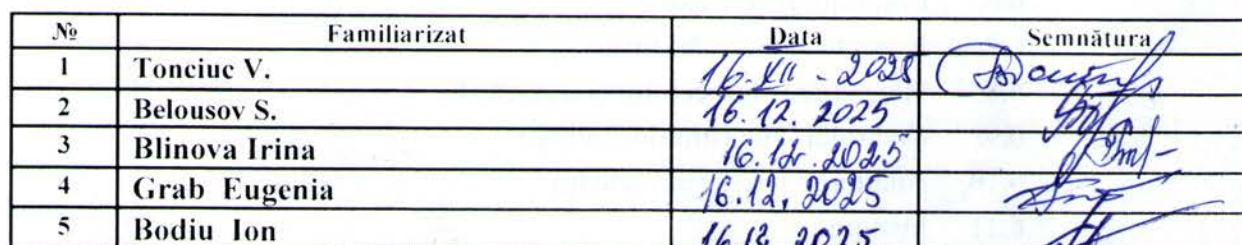 № Familiarizat Data Semnătura
1 Tonciuc V. 16.XII - 2025
2 Belousov S. 16.12.2025
3 Blinova Irina 16.12.2025
4 Grab Eugenia 16.12.2025
5 Bodiu Ion 16.12.2025